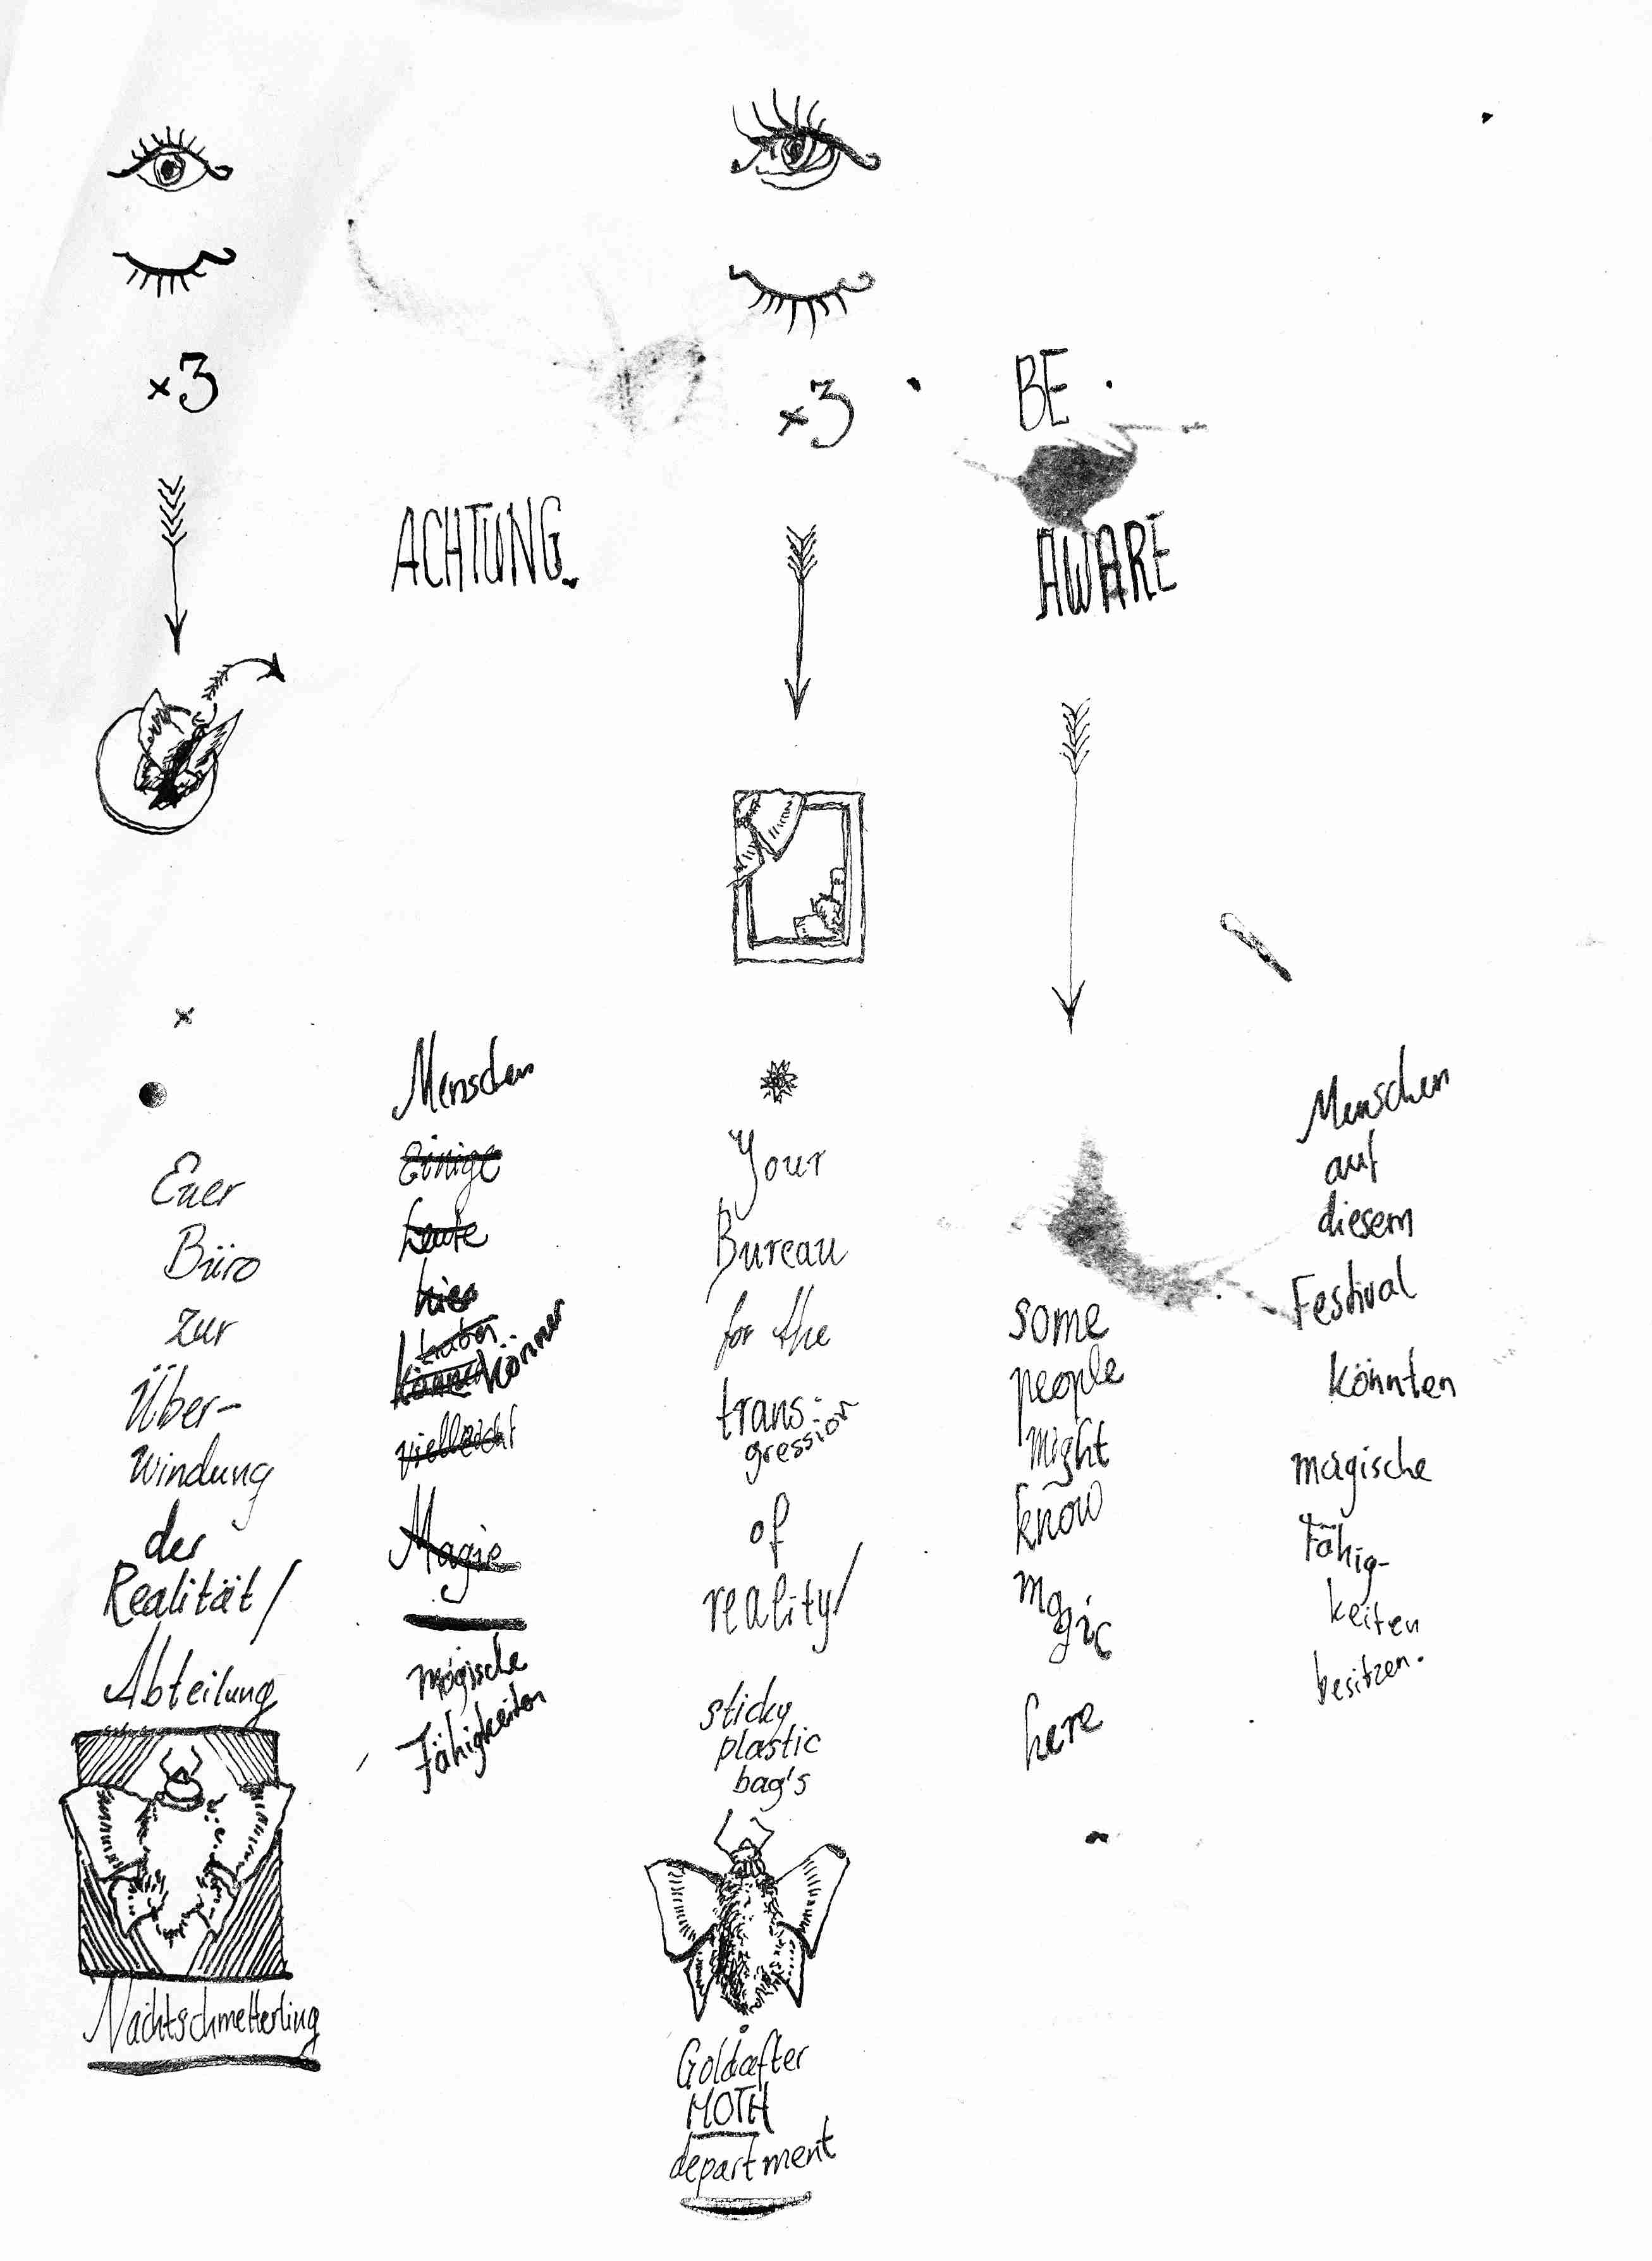 ×3
ACHTUNG.
Euer
Büro
zur
Über-
windung
der
Realität/
Abteilung
Nachtschmetterling
Menschen
Einige
heute
hier
haben
können können
vielleicht
Magie
magische
Fähigkeiten
×3
Your
Bureau
for the
trans-
gression
of
reality/
sticky
plastic
bag's
Goldafter
MOTH
department
BE
AWARE
some
people
might
know
magic
here
Menschen
auf
diesem
Festival
könnten
magische
Fähig-
keiten
besitzen.